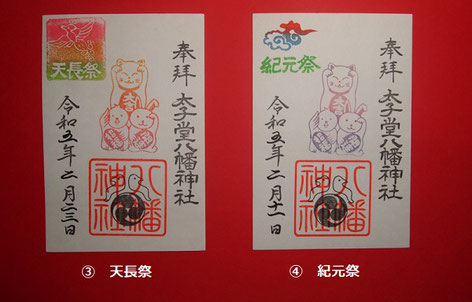 天長祭
奉拝
太子堂八幡神社
令和五年二月二三日
八幡
神社
③ 天長祭
紀元祭
奉拝
太子堂八幡神社
令和五年二月十一日
八幡
神社
④ 紀元祭